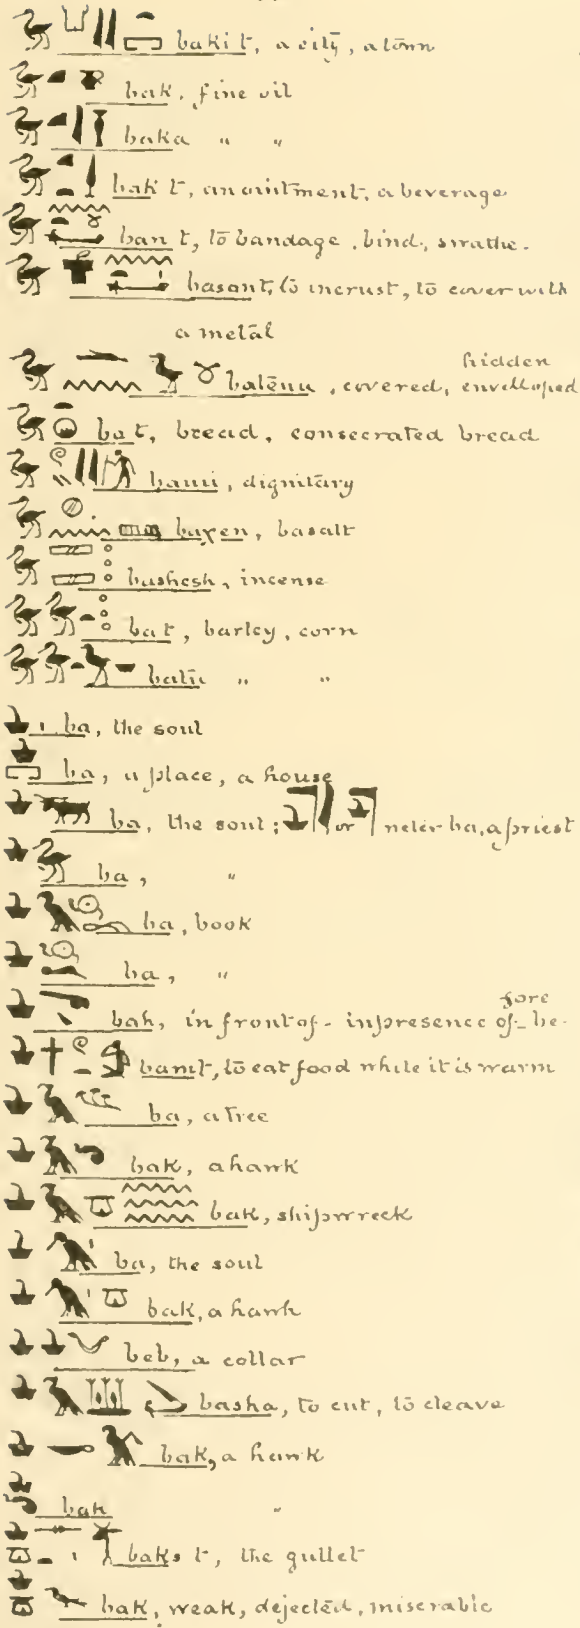 baki t, a city, a town
bak, fine oil
baka " "
bak t, an ointment, a beverage
ban t, to bandage, bind, swathe.
basant, to incrust, to cover with
a metal
hidden
batenu, covered, envelloped
ba t, bread, consecrated bread
baui, dignitary
baχen, basalt
bashesh, incense
bat, barley, corn
batu " "
ba, the soul
ba, a place, a house
ba, the soul; or neter ba, a priest
ba, "
ba, book
ba, "
fore
bah, in front of - in presence of - be-
bamt, to eat food while it is warm
ba, a tree
bak, a hawk
bak, shipwreck
ba, the soul
bak, a hawk
beb, a collar
basha, to cut, to cleave
bak, a hawk
bak "
baks t, the gullet
bak, weak, dejected, miserable